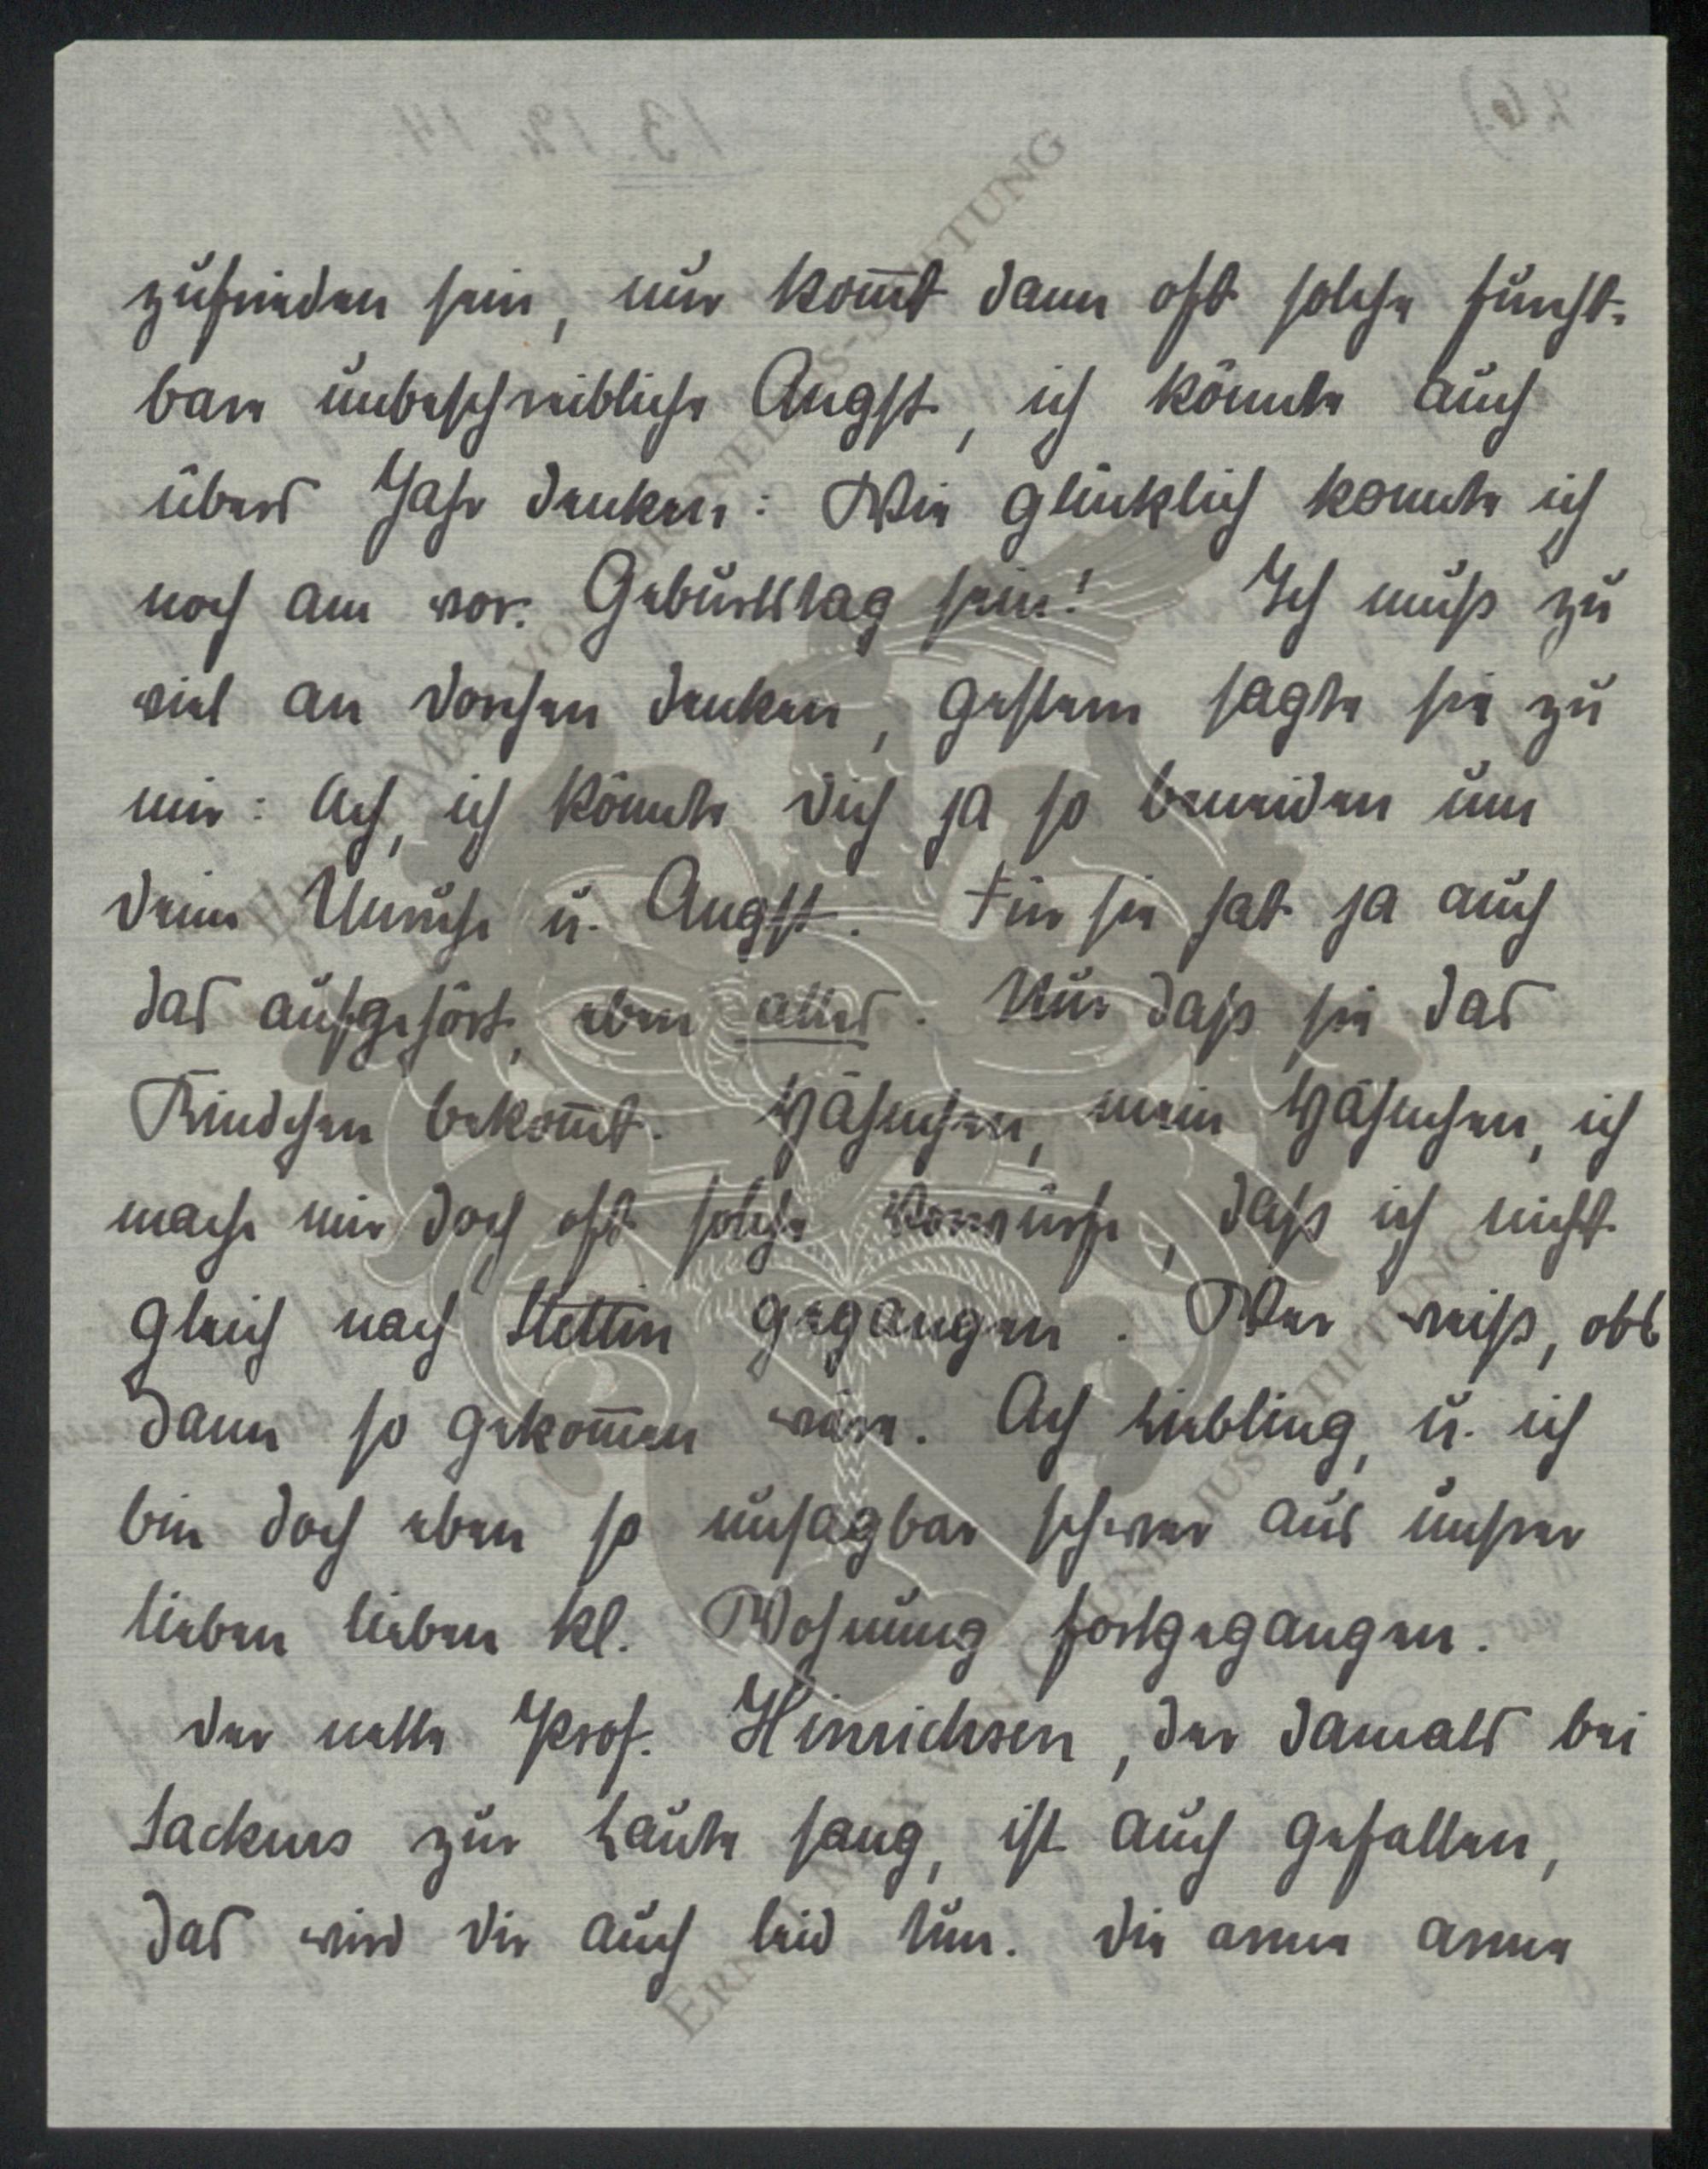 zufrieden sein, nur kom̅t dann oft solche furcht-
bare unbeschreibliche Angst, ich könnte auch
übers Jahr denken: Wie glücklich konnte ich
noch am vor. Geburtstag sein! Ich muß zu
viel an Dorchen denken, gestern sagte sie zu
mir: Ach, ich könnte dich ja so beneiden um
deine Unruhe u. Angst. Für sie hat ja auch
das aufgehört, eben alles. Nur daß sie das
Kindchen bekom̅t. Hähnchen, mein Hähnchen, ich
mache mir doch oft solche Vorwürfe, daß ich nicht
gleich nach Stettin gegangen. Wer weiß, obs
dann so gekom̅en wäre. Ach Liebling, u. ich
bin doch eben so unsagbar schwer aus unsrer
lieben lieben kl. Wohnung fortgegangen.
Der nette Prof. Hinrichsen, der damals bei
Sackurs zur Laute sang, ist auch gefallen,
das wird dir auch leid tun. Die arme arme
13. 12. 14.
ERNST MAX VON GRUNELIUS-STIFTUNG
ERNST MAX VON GRUNELIUS-STIFTUNG